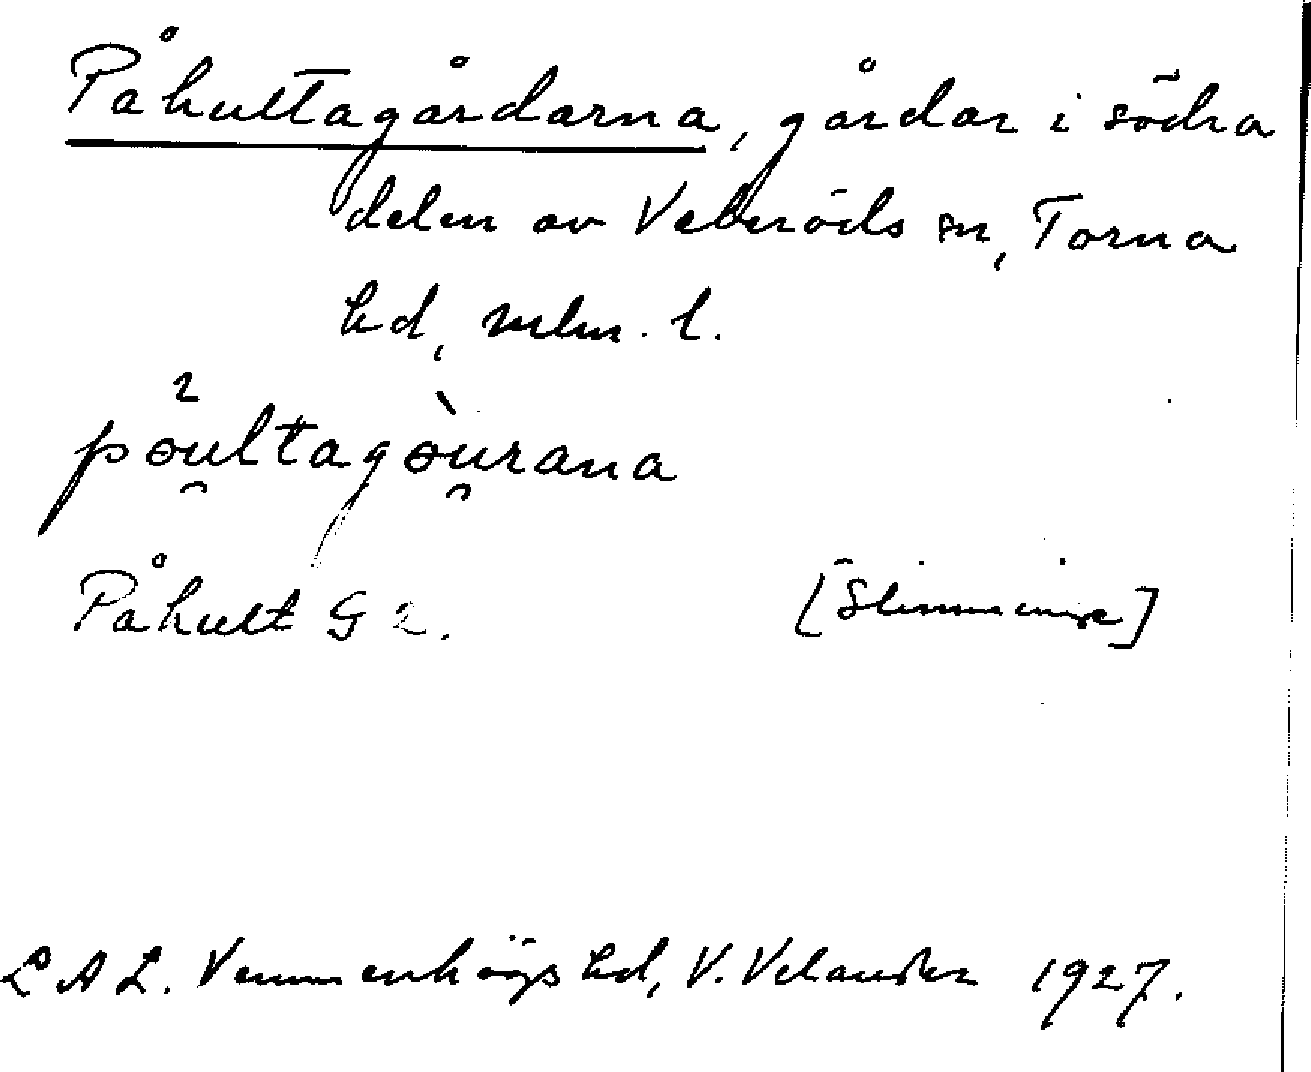 Påhultagårdarna, gårdar i södra
delen av Veberöds sn, Torna
hd, mlm. l.
²pöu̯ltagòu̯rana
Påhult G 2. [Slimminge]
L A L. Vemmenhögs hd, V. Velander 1927.